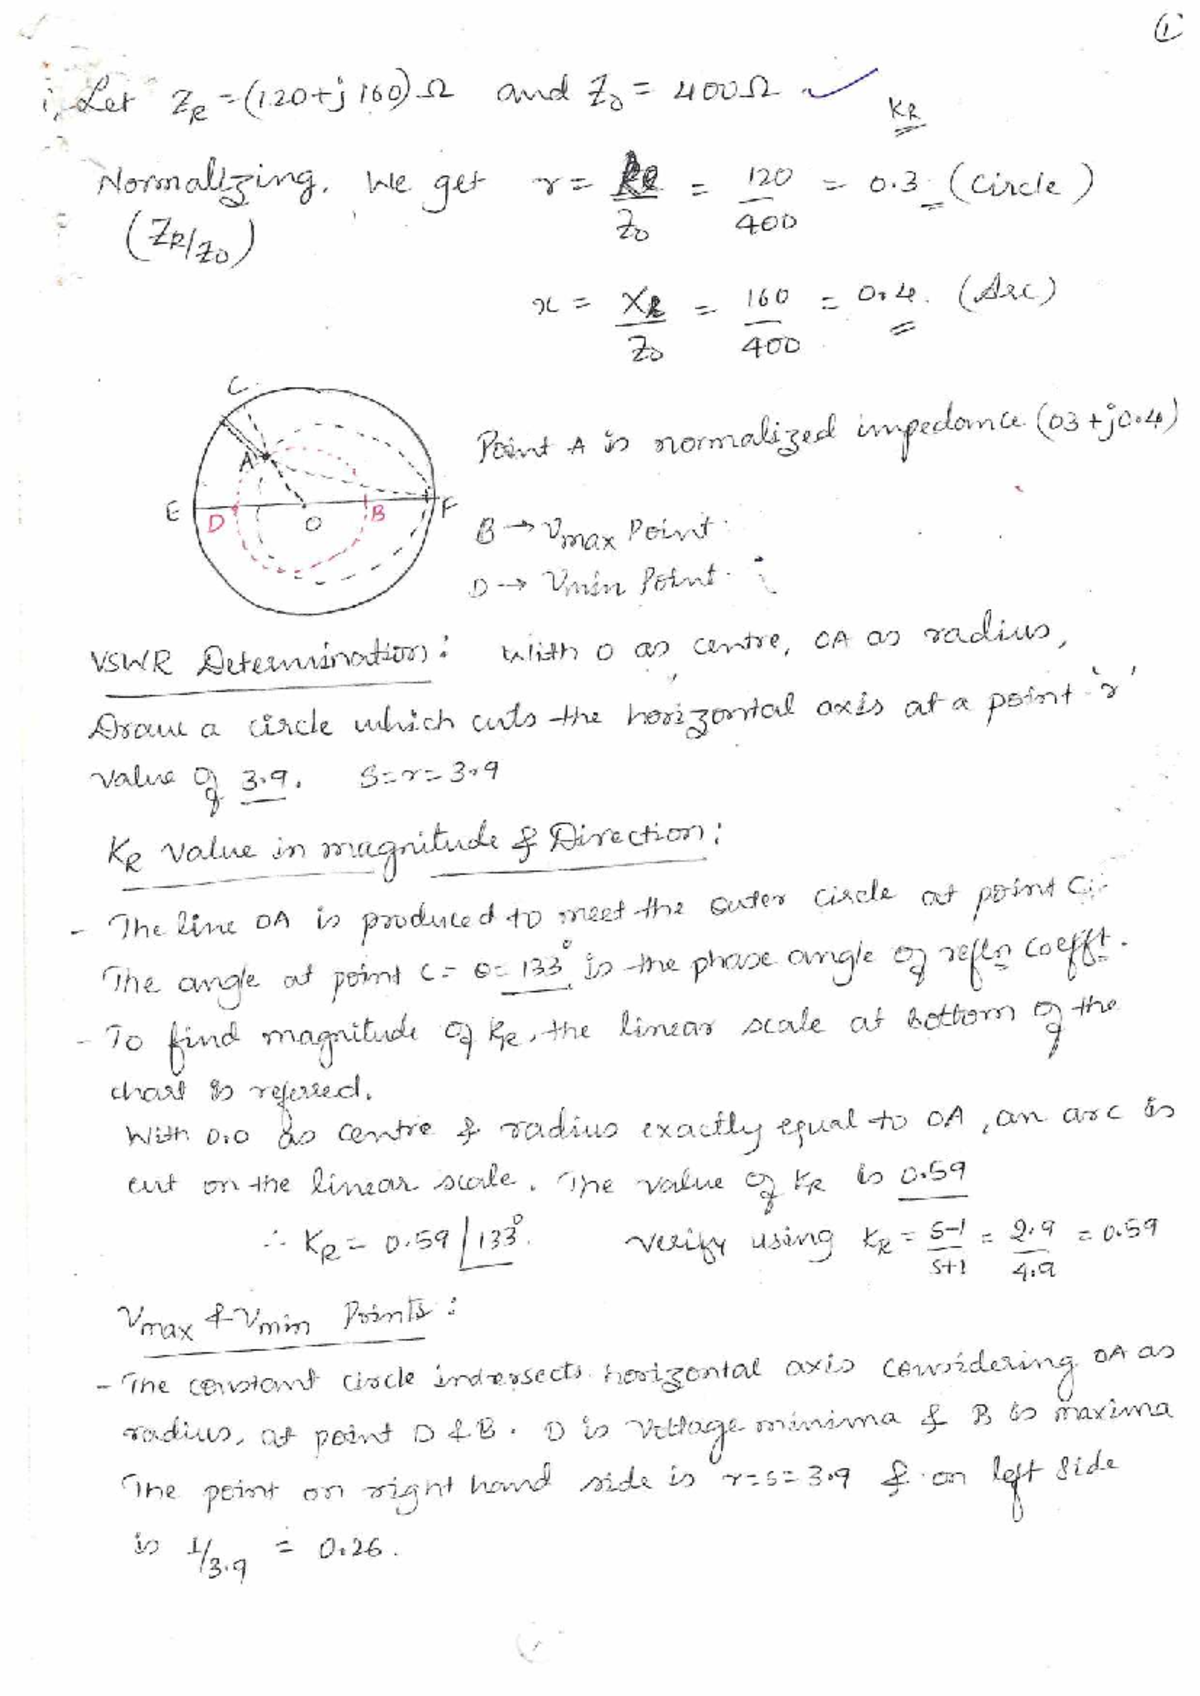 1
i, Let Z_R = (120+j160)Ω and Z_0 = 400Ω ✓
K_R
Normalizing, We get r = R_R/Z_0 = 120/400 = 0.3 (Circle)
(Z_R/Z_0)
x = X_R/Z_0 = 160/400 = 0.4. (Arc)
C
A
E D O B F
Point A is normalized impedance (03+j0.4)
B → Vmax Point
D → Vmin Point.
VSWR Determination: With O as centre, OA as radius,
Draw a circle which cuts the horizontal axis at a point 'r'
value of 3.9. S=r=3.9
K_R value in magnitude & Direction:
- The line OA is produced to meet the outer circle at point C.
The angle at point C = θ = 133° is the phase angle of refln coefft.
- To find magnitude of K_R, the linear scale at bottom of the
chart is referred.
With 0.0 as centre & radius exactly equal to OA, an arc is
cut on the linear scale. The value of K_R is 0.59
∴ K_R = 0.59 ∠133°. verify using K_R = S-1/S+1 = 2.9/4.9 = 0.59
Vmax & Vmin Points:
- The constant circle indersects horizontal axis considering OA as
radius, at point D & B. D is Voltage minima & B is maxima
The point on right hand side is r=s=3.9 & on left side
is 1/3.9 = 0.26.